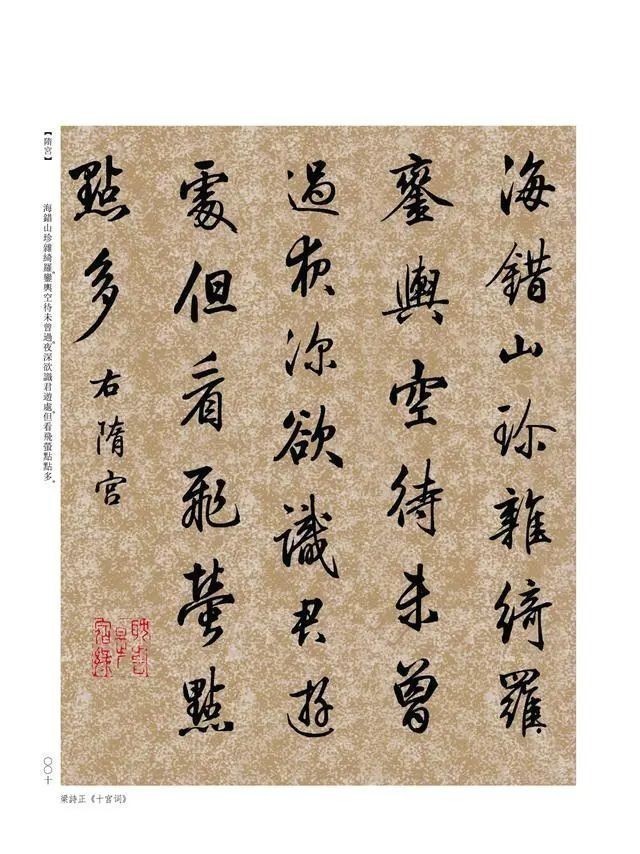 海錯山珍雜綺羅
鑾輿空待未曾
過夜深欲識君遊
處但看飛螢點
點多
右隋宮
【隋宮】
海錯山珍雜綺羅。鑾輿空待未曾過。夜深欲識君遊處。但看飛螢點點多。
〇〇十
梁詩正《十宫词》